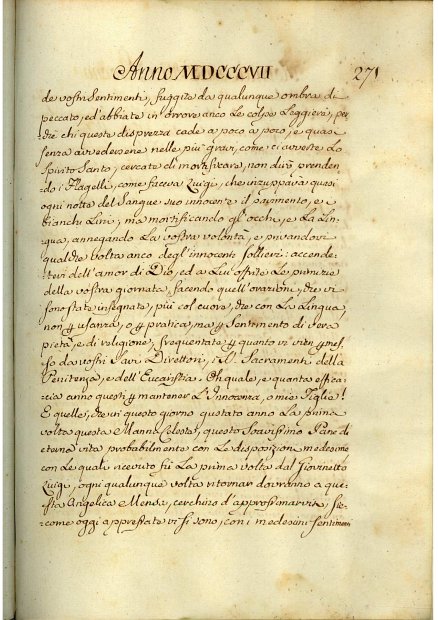 Anno MDCCCVII
271
de vostri Sentimenti, fuggite da qualunque ombra di
peccato, ed abbiate in orrore anco le colpe Leggiere, per-
chè chi queste disprezza cade a poco a poco, e quasi
senza avvedersene nelle più gravi, come ci avverte Lo
Spirito Santo, cercate di mortificarvi, non dirò prenden-
do i Flagelli, come faceva Luigi, che inzuppava quasi
ogni notte del Sangue suo innocente il pavimento, e i
bianchi Lini, ma mortificando gl'occhi, e La Lin-
gua, annegando La vostra volontà, e privandovi
qualche volta anco degl'innocenti sollievi: accende-
tevi dell'amor di Dio, ed a Lui offrite Le primizie
della vostra giornata, facendo quell'orazioni, che vi
sono state insegnate, più col cuore, che con La Lingua,
non p usanza, o p pratica, ma p Sentimento di vera
pietà, e di religione, frequentate p quanto vi vien pmes-
so da vostri Savi Direttori, i SS. Sacramenti della
Penitenza, e dell'Eucaristia. Oh quale, e quanta effica-
cia anno questi p mantener L'Innocenza, o mie Figlie!
E quelle, che in questo giorno gustato anno La prima
volta questa Manna Celeste, questo Soavissimo Pane di
eterna vita probabilmente con Le disposizioni medesime
con Le quali ricevuto fù La prima volta dal Giovinetto
Luigi, ogni qualunque volta ritornar dovranno a que-
sta Angelica Mensa, cerchino d'approssimarvisi, sic-
come oggi appressate vi si sono, con i medesimi sentimenti